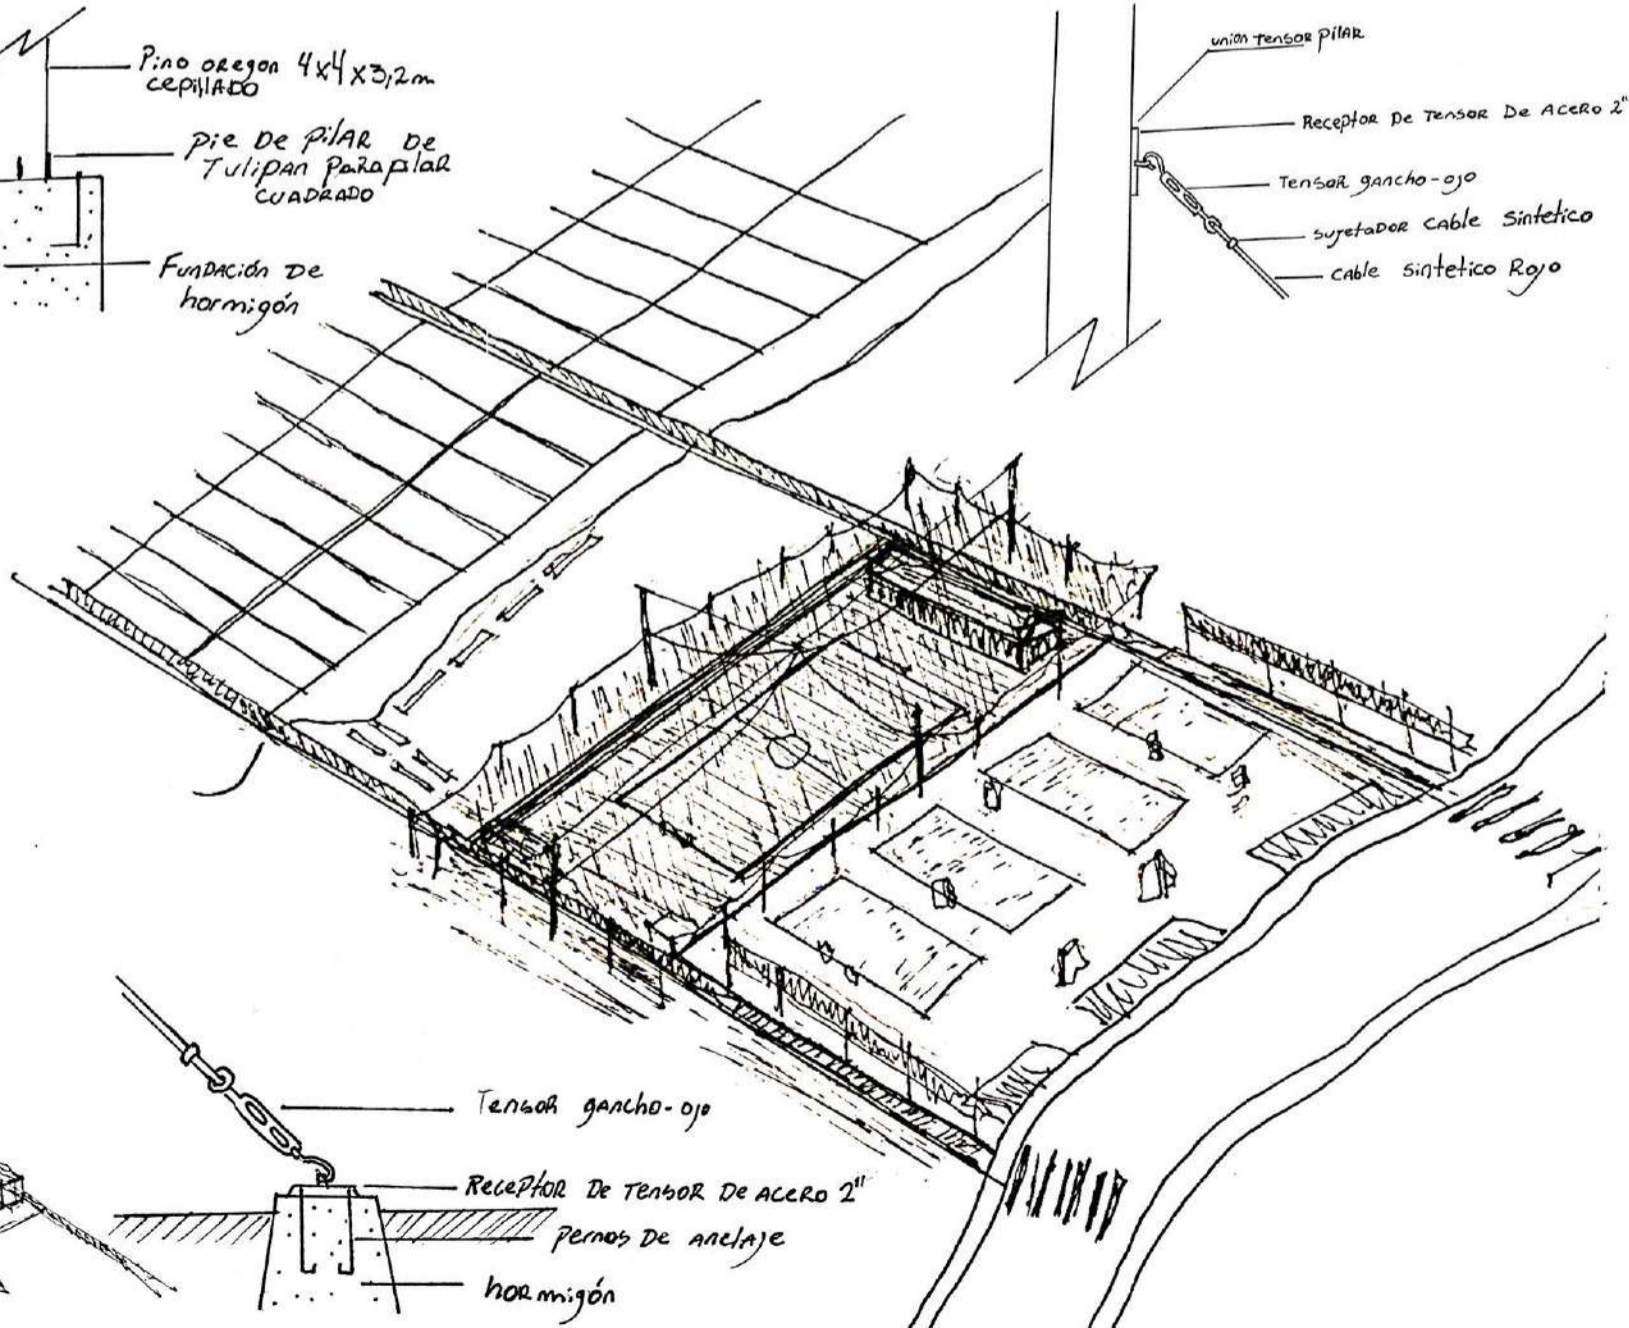 Pino oregon 4x4x3,2m
cepillado
pie De pilAR De
Tulipan para pilar
CUADRADO
FunDación De
hormigón
union Tensor pilAR
Receptor De Tensor De Acero 2"
Tensor gancho-ojo
sujetador cable sintetico
cable sintetico Rojo
Tensor gancho-ojo
Receptor De Tensor De Acero 2"
pernos De anclaje
hormigón